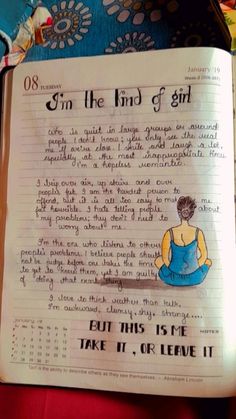 January '19
08 TUESDAY
Week-2 (008-357)
I'm the kind of girl
who is quiet in large groups or around
people I don't know; you only see the real
me if we're close. I smile and laugh a lot,
especially at the most inappropriate times.
I'm a hopeless romantic.
I trip over air, up stairs and over
people's feet. I am the hardest person to
offend, but it is all too easy to make me
feel horrible. I hate telling people about
my problems; they don't need to
worry about me.
I'm the one who listens to others
people's problems. I believe people should
not be judge before one takes the time
to get to know them, yet I am guilty
of doing that exact thing
I love to think rather than talk.
I'm awkward, clumsy, shy, strange....
BUT THIS IS ME
NOTES
TAKE IT, OR LEAVE IT
Tact is the ability to describe others as they see themselves. - Abraham Lincoln